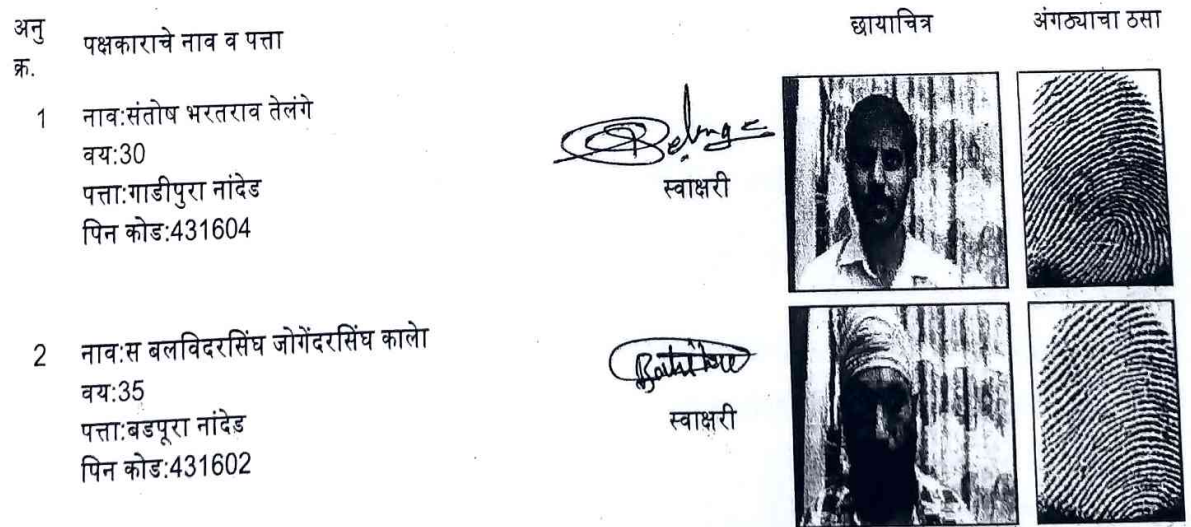 अनु क्र. पक्षकाराचे नाव व पत्ता छायाचित्र अंगठ्याचा ठसा
1 नाव:संतोष भरतराव तेलंगे
वय:30
पत्ता:गाडीपुरा नांदेड
पिन कोड:431604
स्वाक्षरी
2 नाव:स बलविदरसिंघ जोगेंदरसिंघ कालेा
वय:35
पत्ता:बडपूरा नांदेड
पिन कोड:431602
स्वाक्षरी